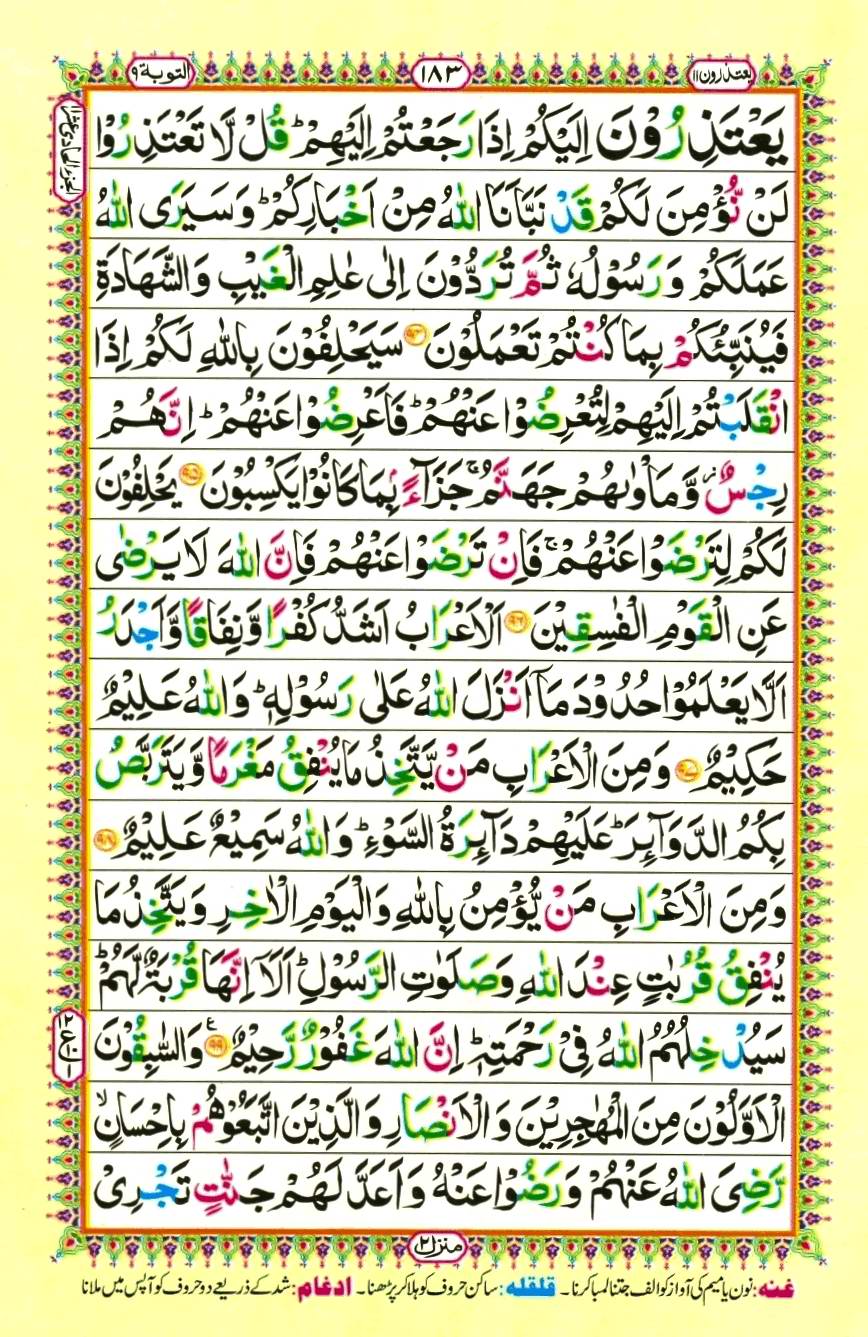 یعتذرون ۱۱
۱۸۳
التوبة ۹
الجزء الحادي عشر ۱۱
یَعْتَذِرُوْنَ اِلَیْكُمْ اِذَا رَجَعْتُمْ اِلَیْهِمْ ؕ قُلْ لَّا تَعْتَذِرُوْا
لَنْ نُّؤْمِنَ لَكُمْ قَدْ نَبَّاَنَا اللّٰهُ مِنْ اَخْبَارِكُمْ ؕ وَ سَیَرَی اللّٰهُ
عَمَلَكُمْ وَ رَسُوْلُهٗ ثُمَّ تُرَدُّوْنَ اِلٰی عٰلِمِ الْغَیْبِ وَ الشَّهَادَةِ
فَیُنَبِّئُكُمْ بِمَا كُنْتُمْ تَعْمَلُوْنَ ﴿۹۴﴾ سَیَحْلِفُوْنَ بِاللّٰهِ لَكُمْ اِذَا
انْقَلَبْتُمْ اِلَیْهِمْ لِتُعْرِضُوْا عَنْهُمْ ؕ فَاَعْرِضُوْا عَنْهُمْ ؕ اِنَّهُمْ
رِجْسٌ ؗ وَّ مَاْوٰىهُمْ جَهَنَّمُ ۚ جَزَآءًۢ بِمَا كَانُوْا یَكْسِبُوْنَ ﴿۹۵﴾ یَحْلِفُوْنَ
لَكُمْ لِتَرْضَوْا عَنْهُمْ ۚ فَاِنْ تَرْضَوْا عَنْهُمْ فَاِنَّ اللّٰهَ لَا یَرْضٰی
عَنِ الْقَوْمِ الْفٰسِقِیْنَ ﴿۹۶﴾ اَلْاَعْرَابُ اَشَدُّ كُفْرًا وَّ نِفَاقًا وَّ اَجْدَرُ
اَلَّا یَعْلَمُوْا حُدُوْدَ مَاۤ اَنْزَلَ اللّٰهُ عَلٰی رَسُوْلِهٖ ؕ وَ اللّٰهُ عَلِیْمٌ
حَكِیْمٌ ﴿۹۷﴾ وَ مِنَ الْاَعْرَابِ مَنْ یَّتَّخِذُ مَا یُنْفِقُ مَغْرَمًا وَّ یَتَرَبَّصُ
بِكُمُ الدَّوَآئِرَ ؕ عَلَیْهِمْ دَآئِرَةُ السَّوْءِ ؕ وَ اللّٰهُ سَمِیْعٌ عَلِیْمٌ ﴿۹۸﴾
وَ مِنَ الْاَعْرَابِ مَنْ یُّؤْمِنُ بِاللّٰهِ وَ الْیَوْمِ الْاٰخِرِ وَ یَتَّخِذُ مَا
یُنْفِقُ قُرُبٰتٍ عِنْدَ اللّٰهِ وَ صَلَوٰتِ الرَّسُوْلِ ؕ اَلَاۤ اِنَّهَا قُرْبَةٌ لَّهُمْ ؕ
سَیُدْخِلُهُمُ اللّٰهُ فِیْ رَحْمَتِهٖ ؕ اِنَّ اللّٰهَ غَفُوْرٌ رَّحِیْمٌ ﴿۹۹﴾ ع وَ السّٰبِقُوْنَ
الْاَوَّلُوْنَ مِنَ الْمُهٰجِرِیْنَ وَ الْاَنْصَارِ وَ الَّذِیْنَ اتَّبَعُوْهُمْ بِاِحْسَانٍ ۙ
رَّضِیَ اللّٰهُ عَنْهُمْ وَ رَضُوْا عَنْهُ وَ اَعَدَّ لَهُمْ جَنّٰتٍ تَجْرِیْ
منزل ۲
غنہ : نون یا میم کی آواز کو الف جتنا لمبا کرنا ۔ قلقلہ : ساکن حروف کو ہلا کر پڑھنا ۔ ادغام : شد کے ذریعے دو حروف کو آپس میں ملانا